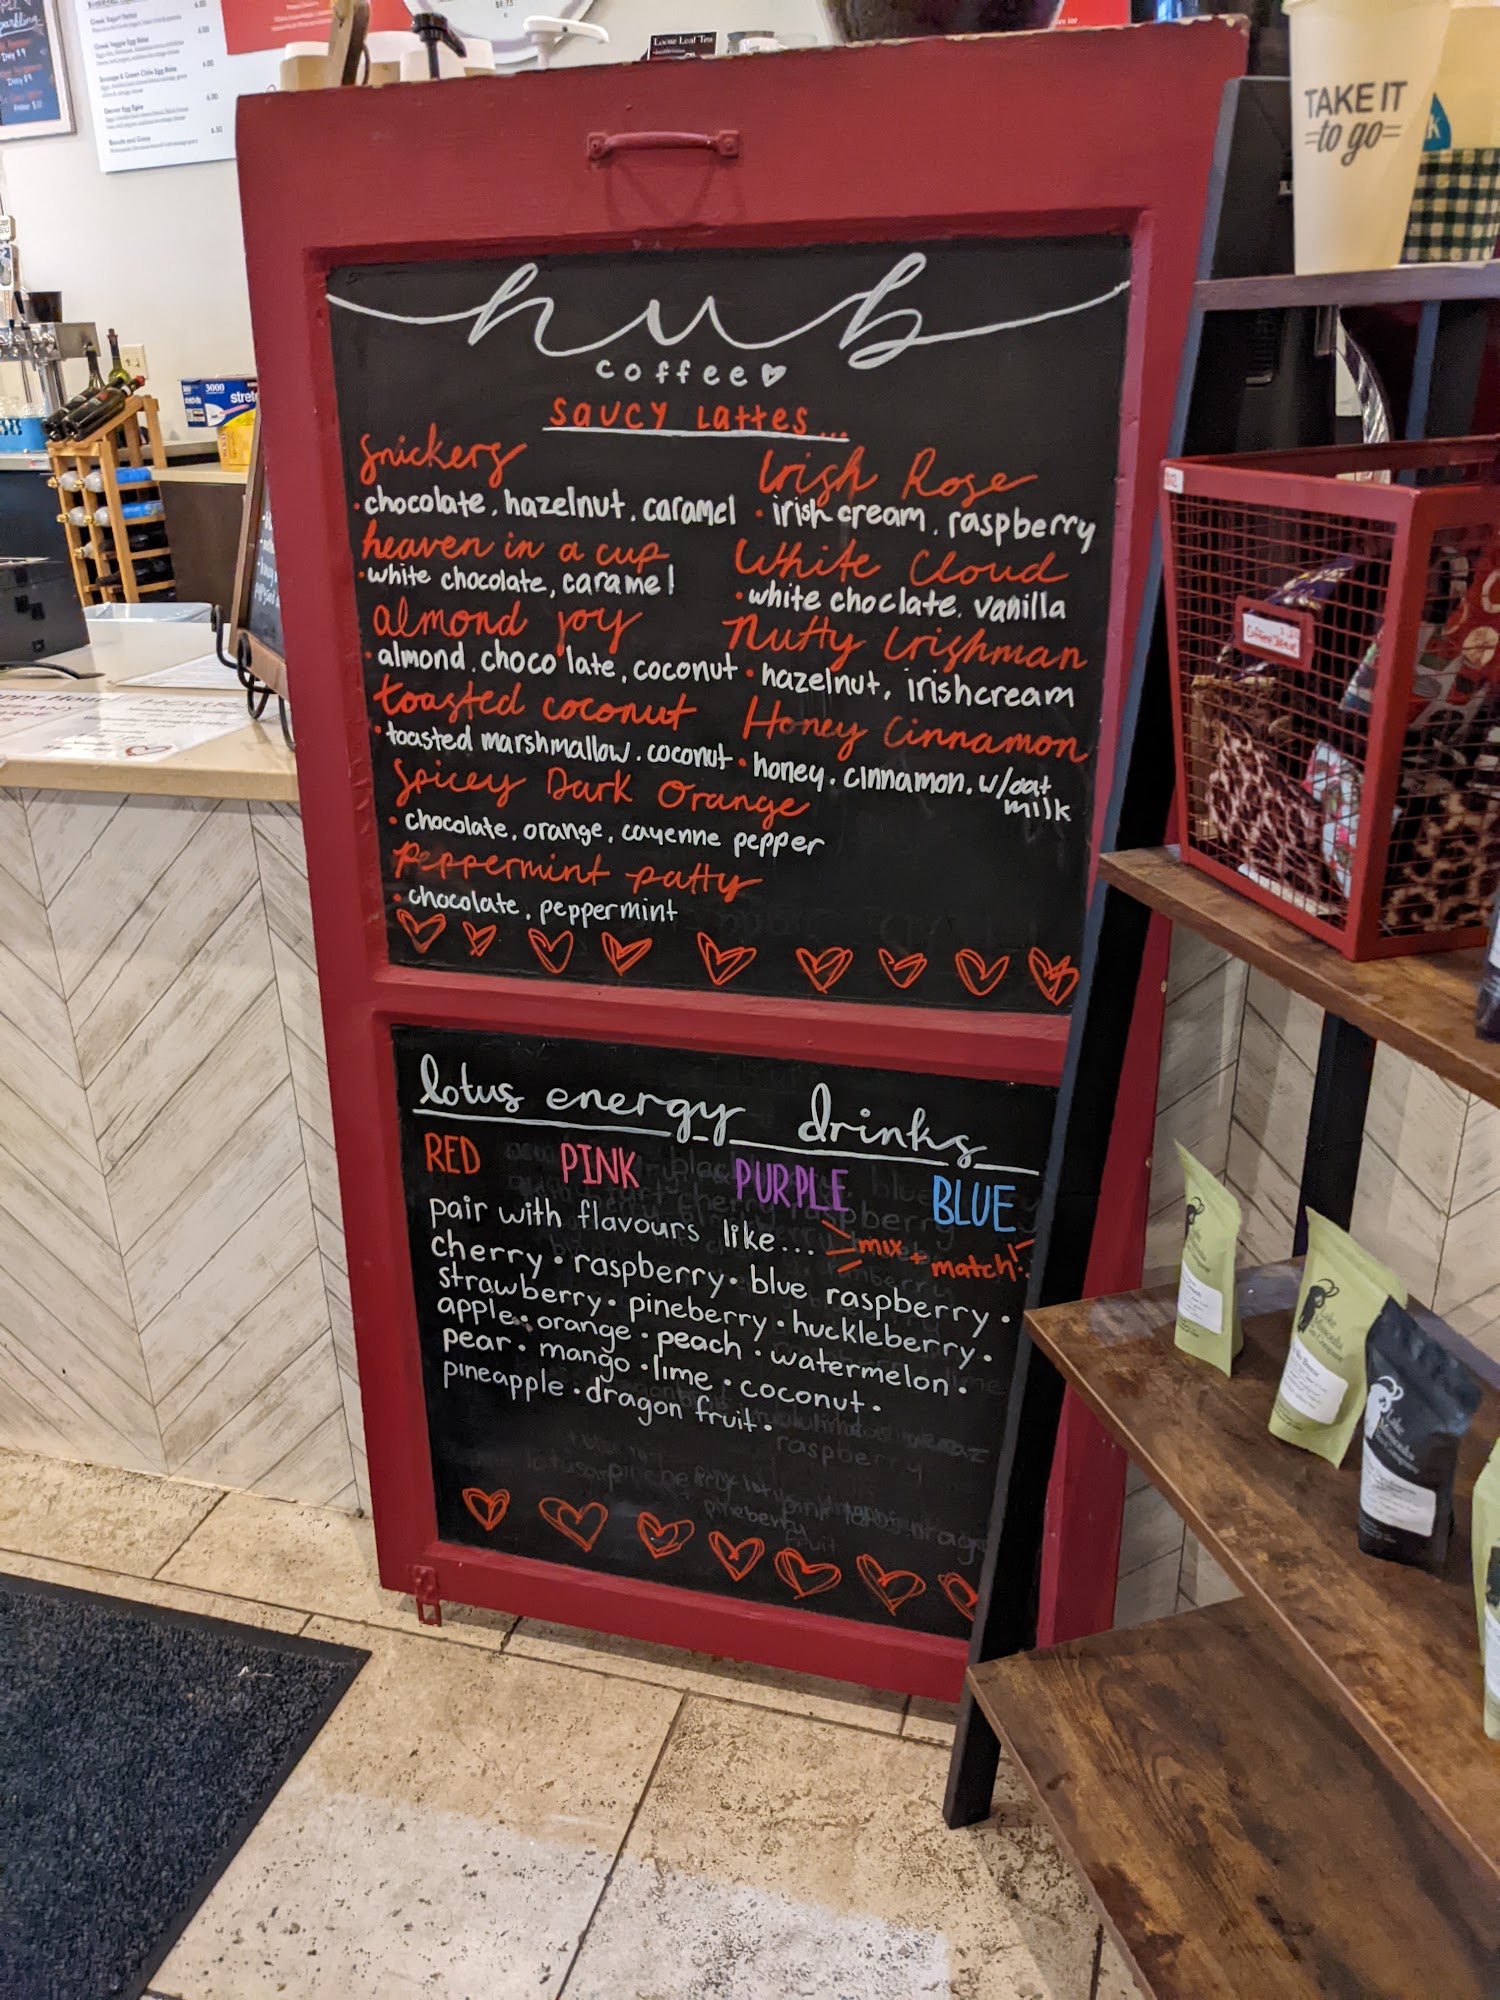 hub
coffee
Saucy Lattes...
Snickers
• chocolate, hazelnut, caramel
heaven in a cup
• white chocolate, caramel
almond joy
• almond, chocolate, coconut
toasted coconut
• toasted marshmallow, coconut
Spicey Dark Orange
• chocolate, orange, cayenne pepper
Peppermint patty
• chocolate, peppermint
Irish Rose
• irish cream, raspberry
White Cloud
• white choclate, vanilla
Nutty Irishman
• hazelnut, irishcream
Honey Cinnamon
• honey, cinnamon, w/oat
milk
lotus energy drinks
RED PINK PURPLE BLUE
pair with flavours like...
mix + match!
cherry • raspberry • blue raspberry •
strawberry • pineberry • huckleberry •
apple • orange • peach • watermelon •
pear • mango • lime • coconut •
pineapple • dragon fruit •
TAKE IT
to go
Loose Leaf Tea
3000
stret
Greek Veggie Egg Bake
Sausage & Green Chile Egg Bake
6.00
Denver Egg Bake
6.00
Biscuits and Gravy
6.50
HOURS